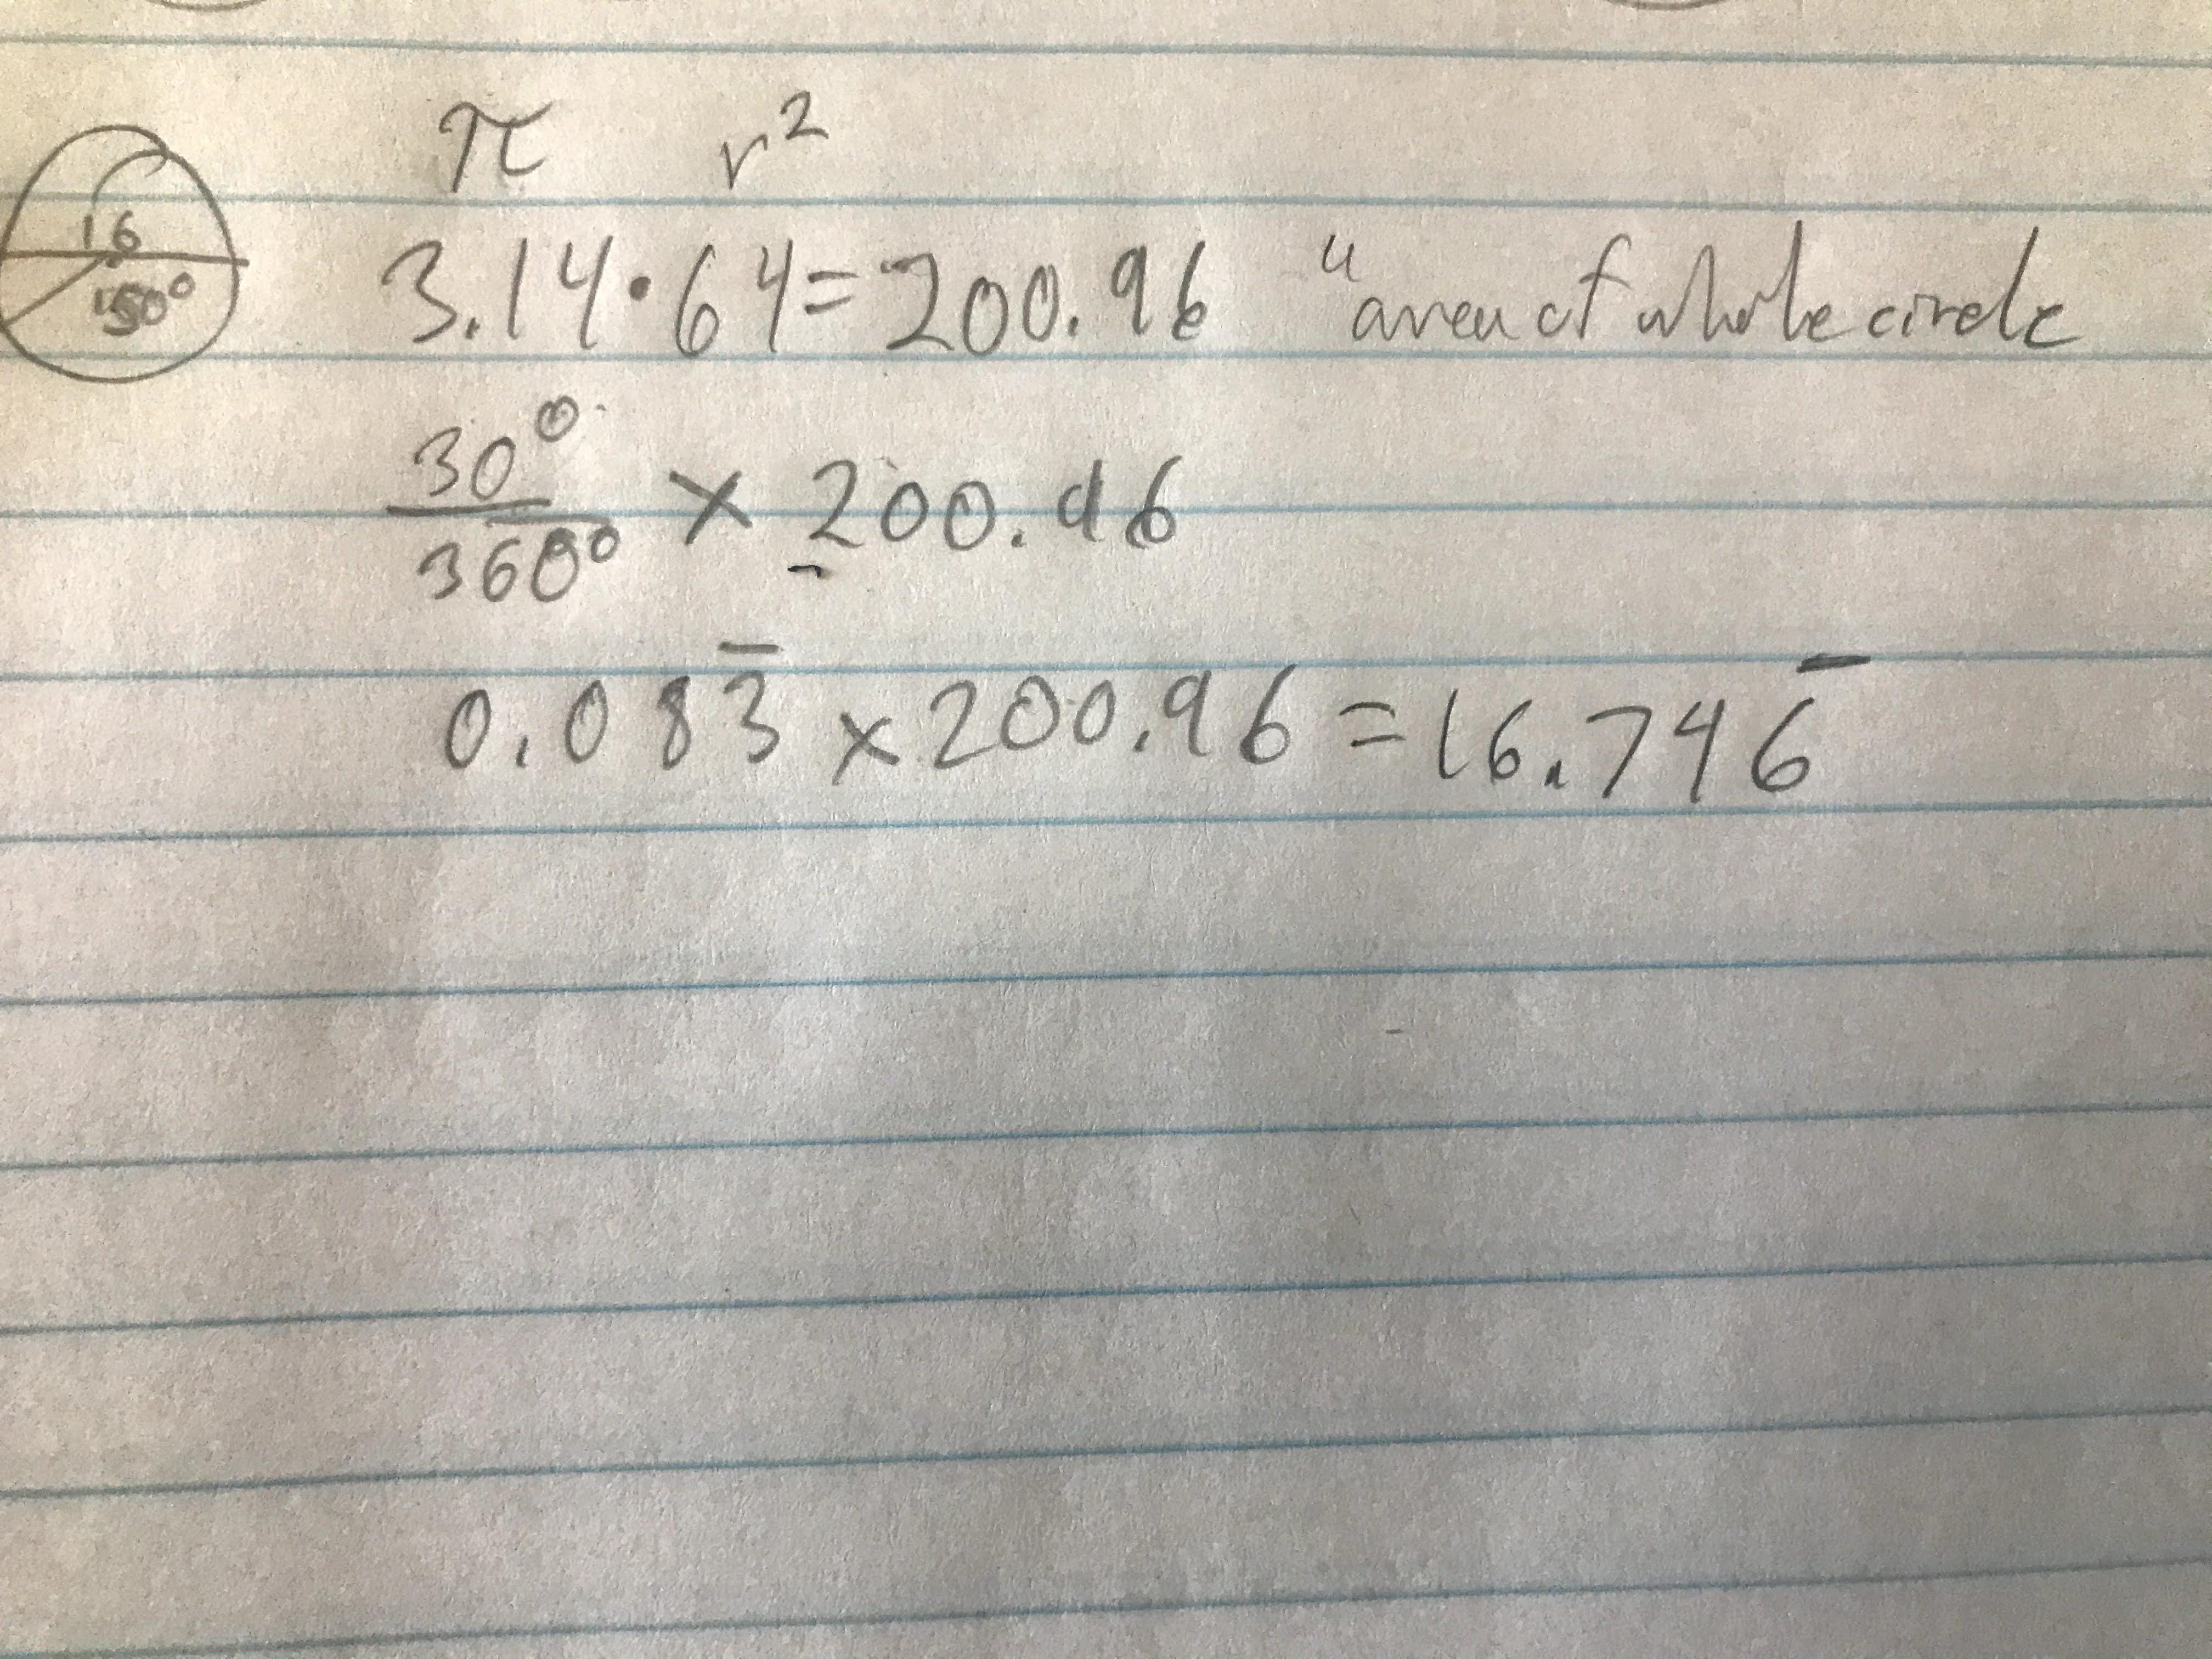 π r²
16
150°
3.14·64=200.96 "area of whole circle
30°
360° × 200.96
0.083̅ × 200.96 = 16.746̅